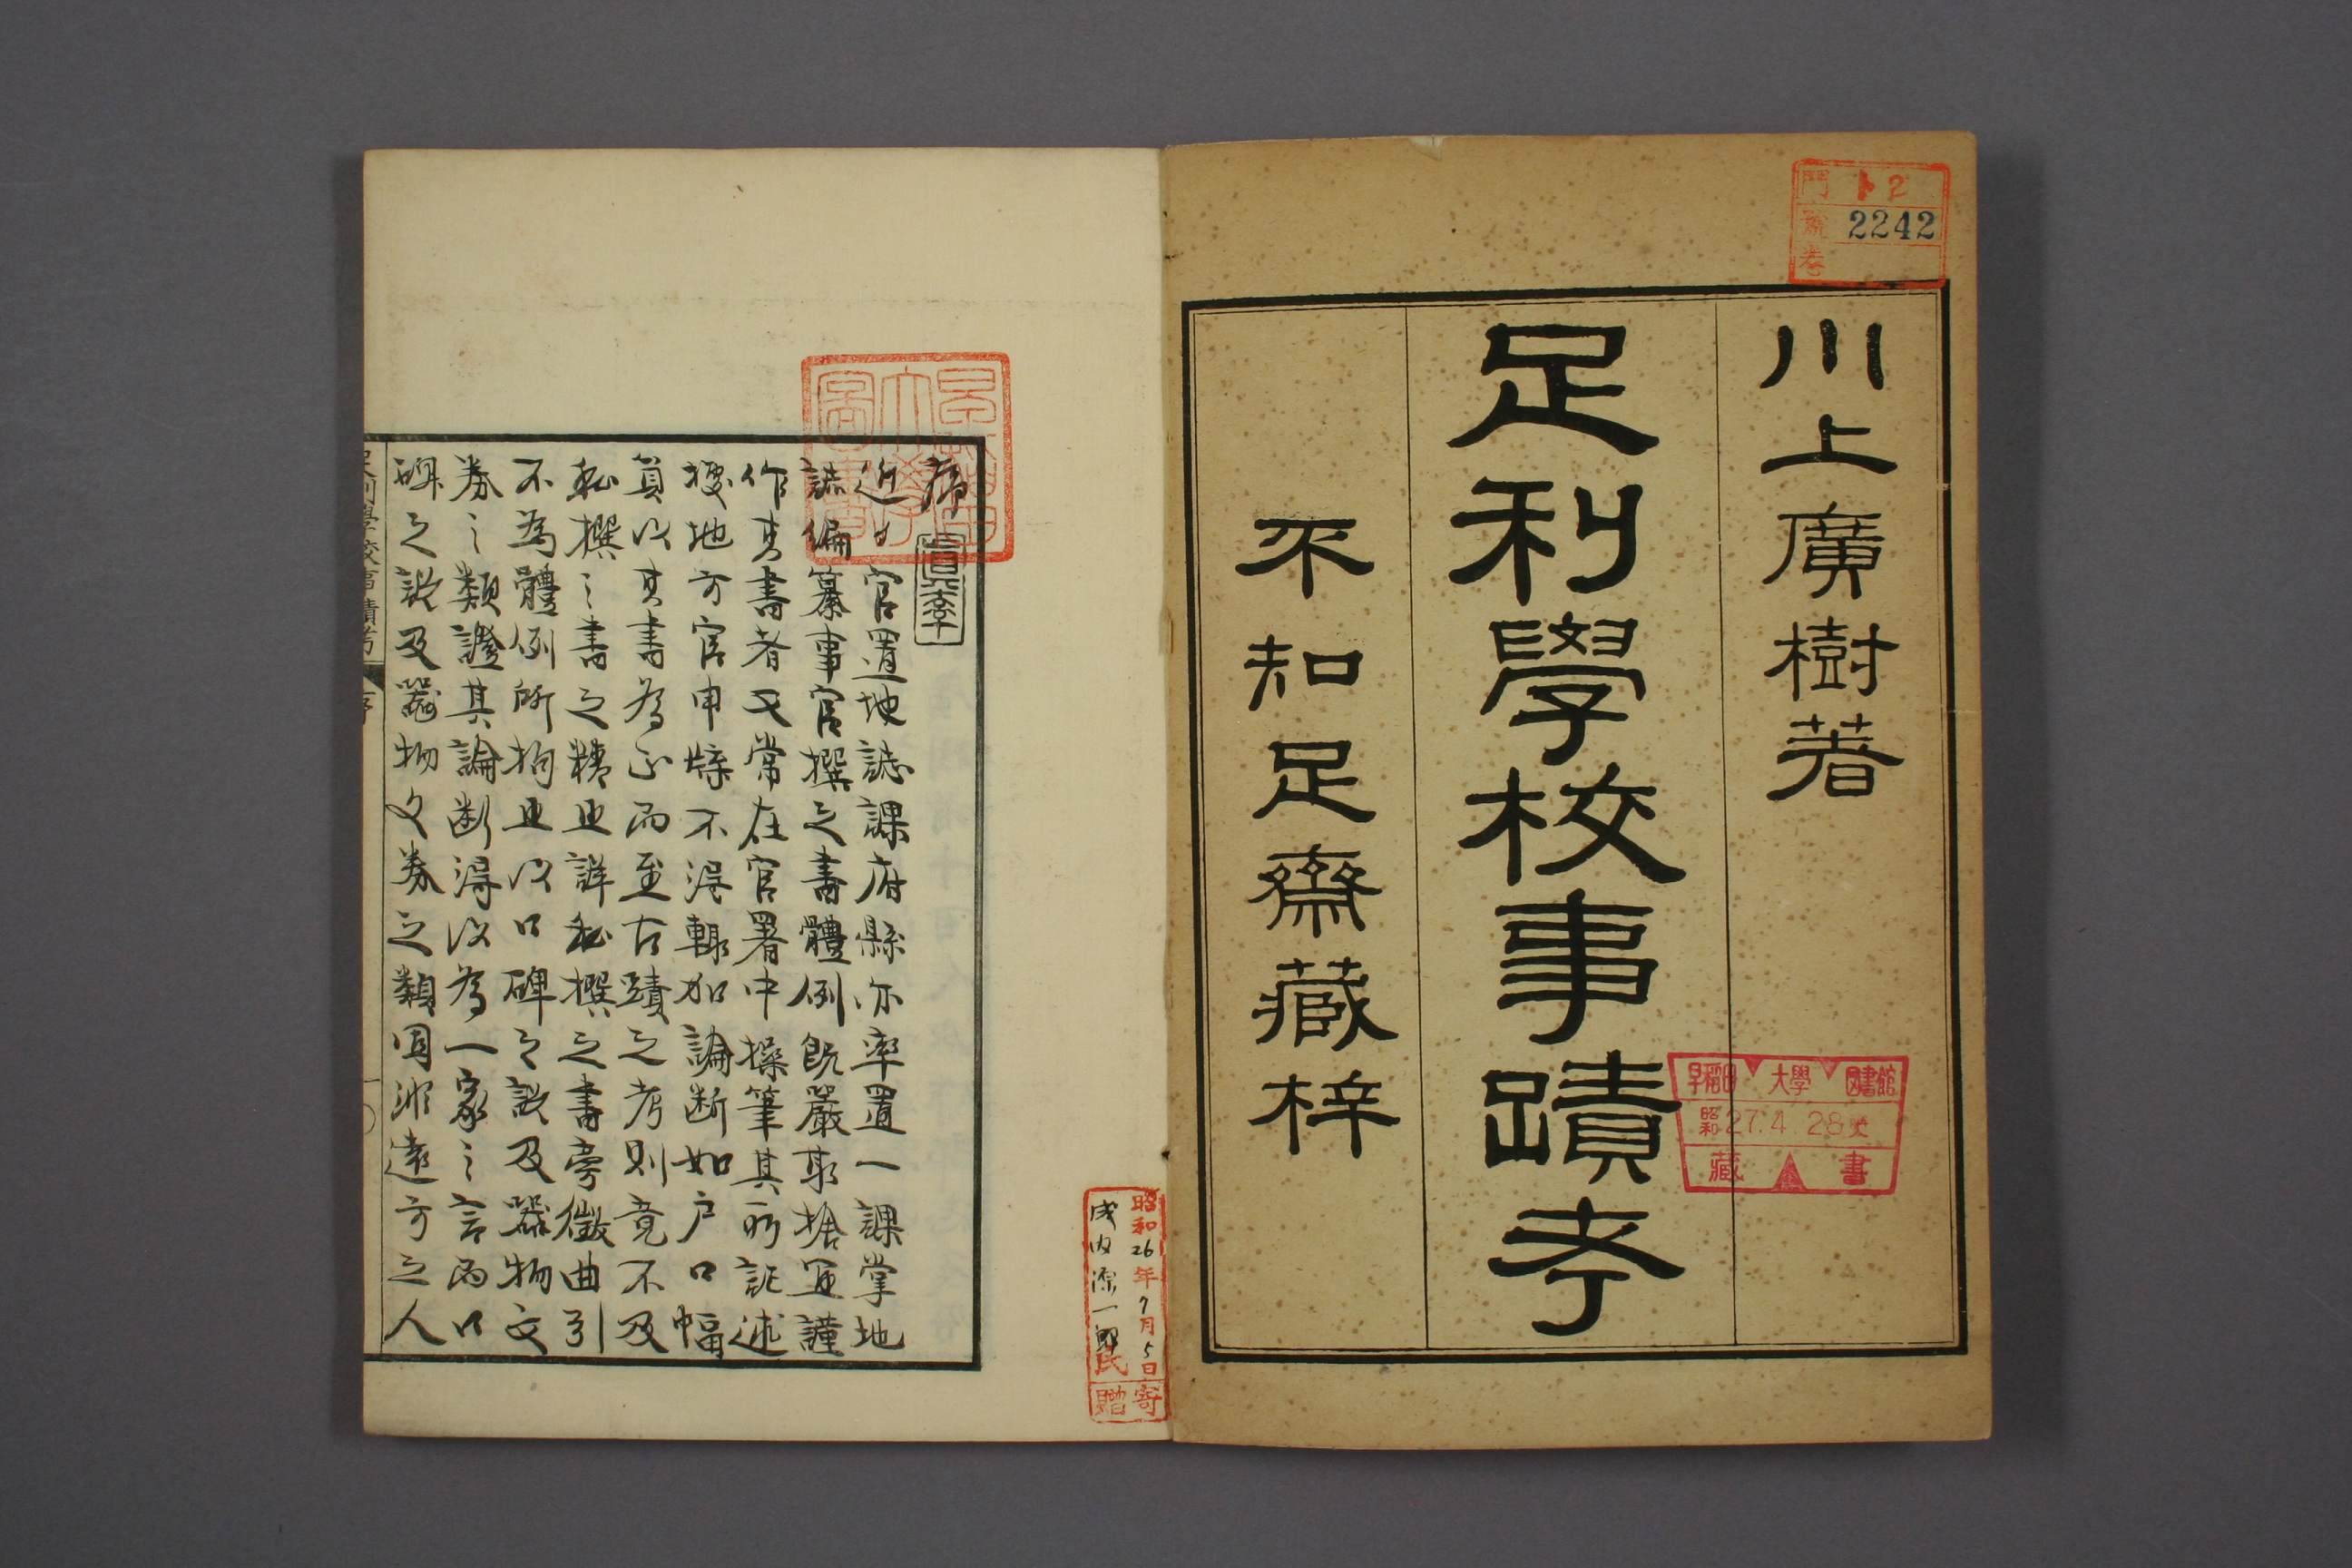 門 ト2
號 2242
卷
川上廣樹著
足利學校事蹟考
不知足齋藏梓
早稲田大學圖書館
昭和27.4.28
藏書
昭和26年7月5日寄
一郎氏贈
序
近日官置地誌課府縣亦率置一課掌地
誌編纂事官撰之書體例既嚴取捨宜謹
作其書者又常在官署中操筆其所記述
據地方官申牒不得輒加論斷如戶口幅
員以其書為正而至古蹟之考則竟不及
私撰之書之精且詳私撰之書旁徵曲引
不為體例所拘且以口碑之說及器物文
券之類證其論斷得以為一家之言而口
碑之說及器物文券之類固非遠方之人
足利學校事蹟考 序